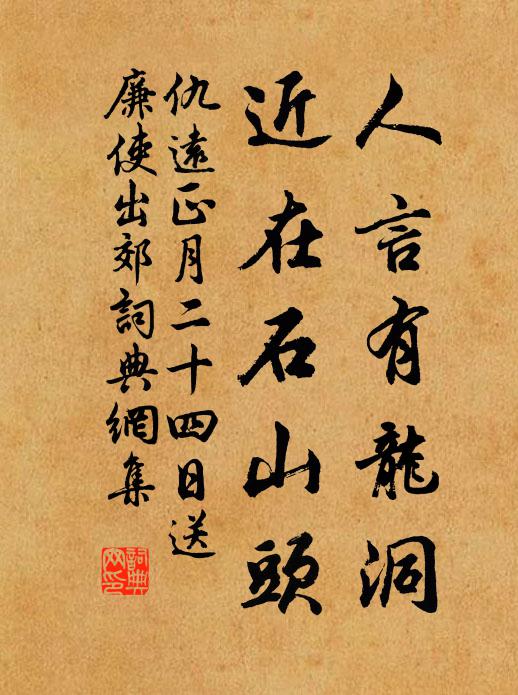 人言有龍洞
近在石山頭
仇遠正月二十四日送
廉使出郊詞典網集
詞典網印